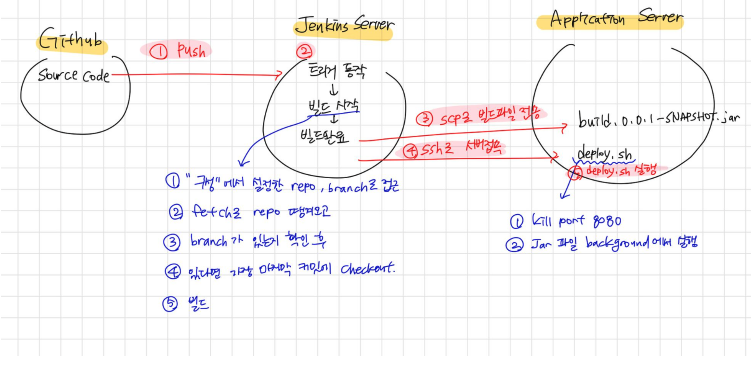 Github
Source code
① Push
Jenkins Server
②
트리거 동작
↓
빌드 시작
↓
빌드완료
③ scp로 빌드파일 전송
④ ssh로 서버접속
Application Server
build.0.0.1-SNAPSHOT.jar
deploy.sh
⑤ deploy.sh 실행
① "구성"에서 설정한 repo, branch로 접근
② fetch로 repo 땡겨오고
③ branch가 있는지 확인 후
④ 있다면 가장 마지막 커밋에 checkout.
⑤ 빌드
① kill port 8080
② Jar 파일 background에서 실행